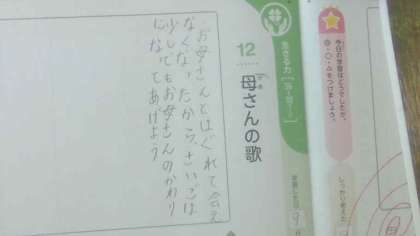 今日の学習はどうでしたか。
◎・○・△をつけましょう。
しっかり考えた
生きる力
12
母さんの歌
かあ
学習した日
9
・お母さんとはぐれて会え
なくなったから、さいごは
少しでもお母さんのかわり
になってあげよう